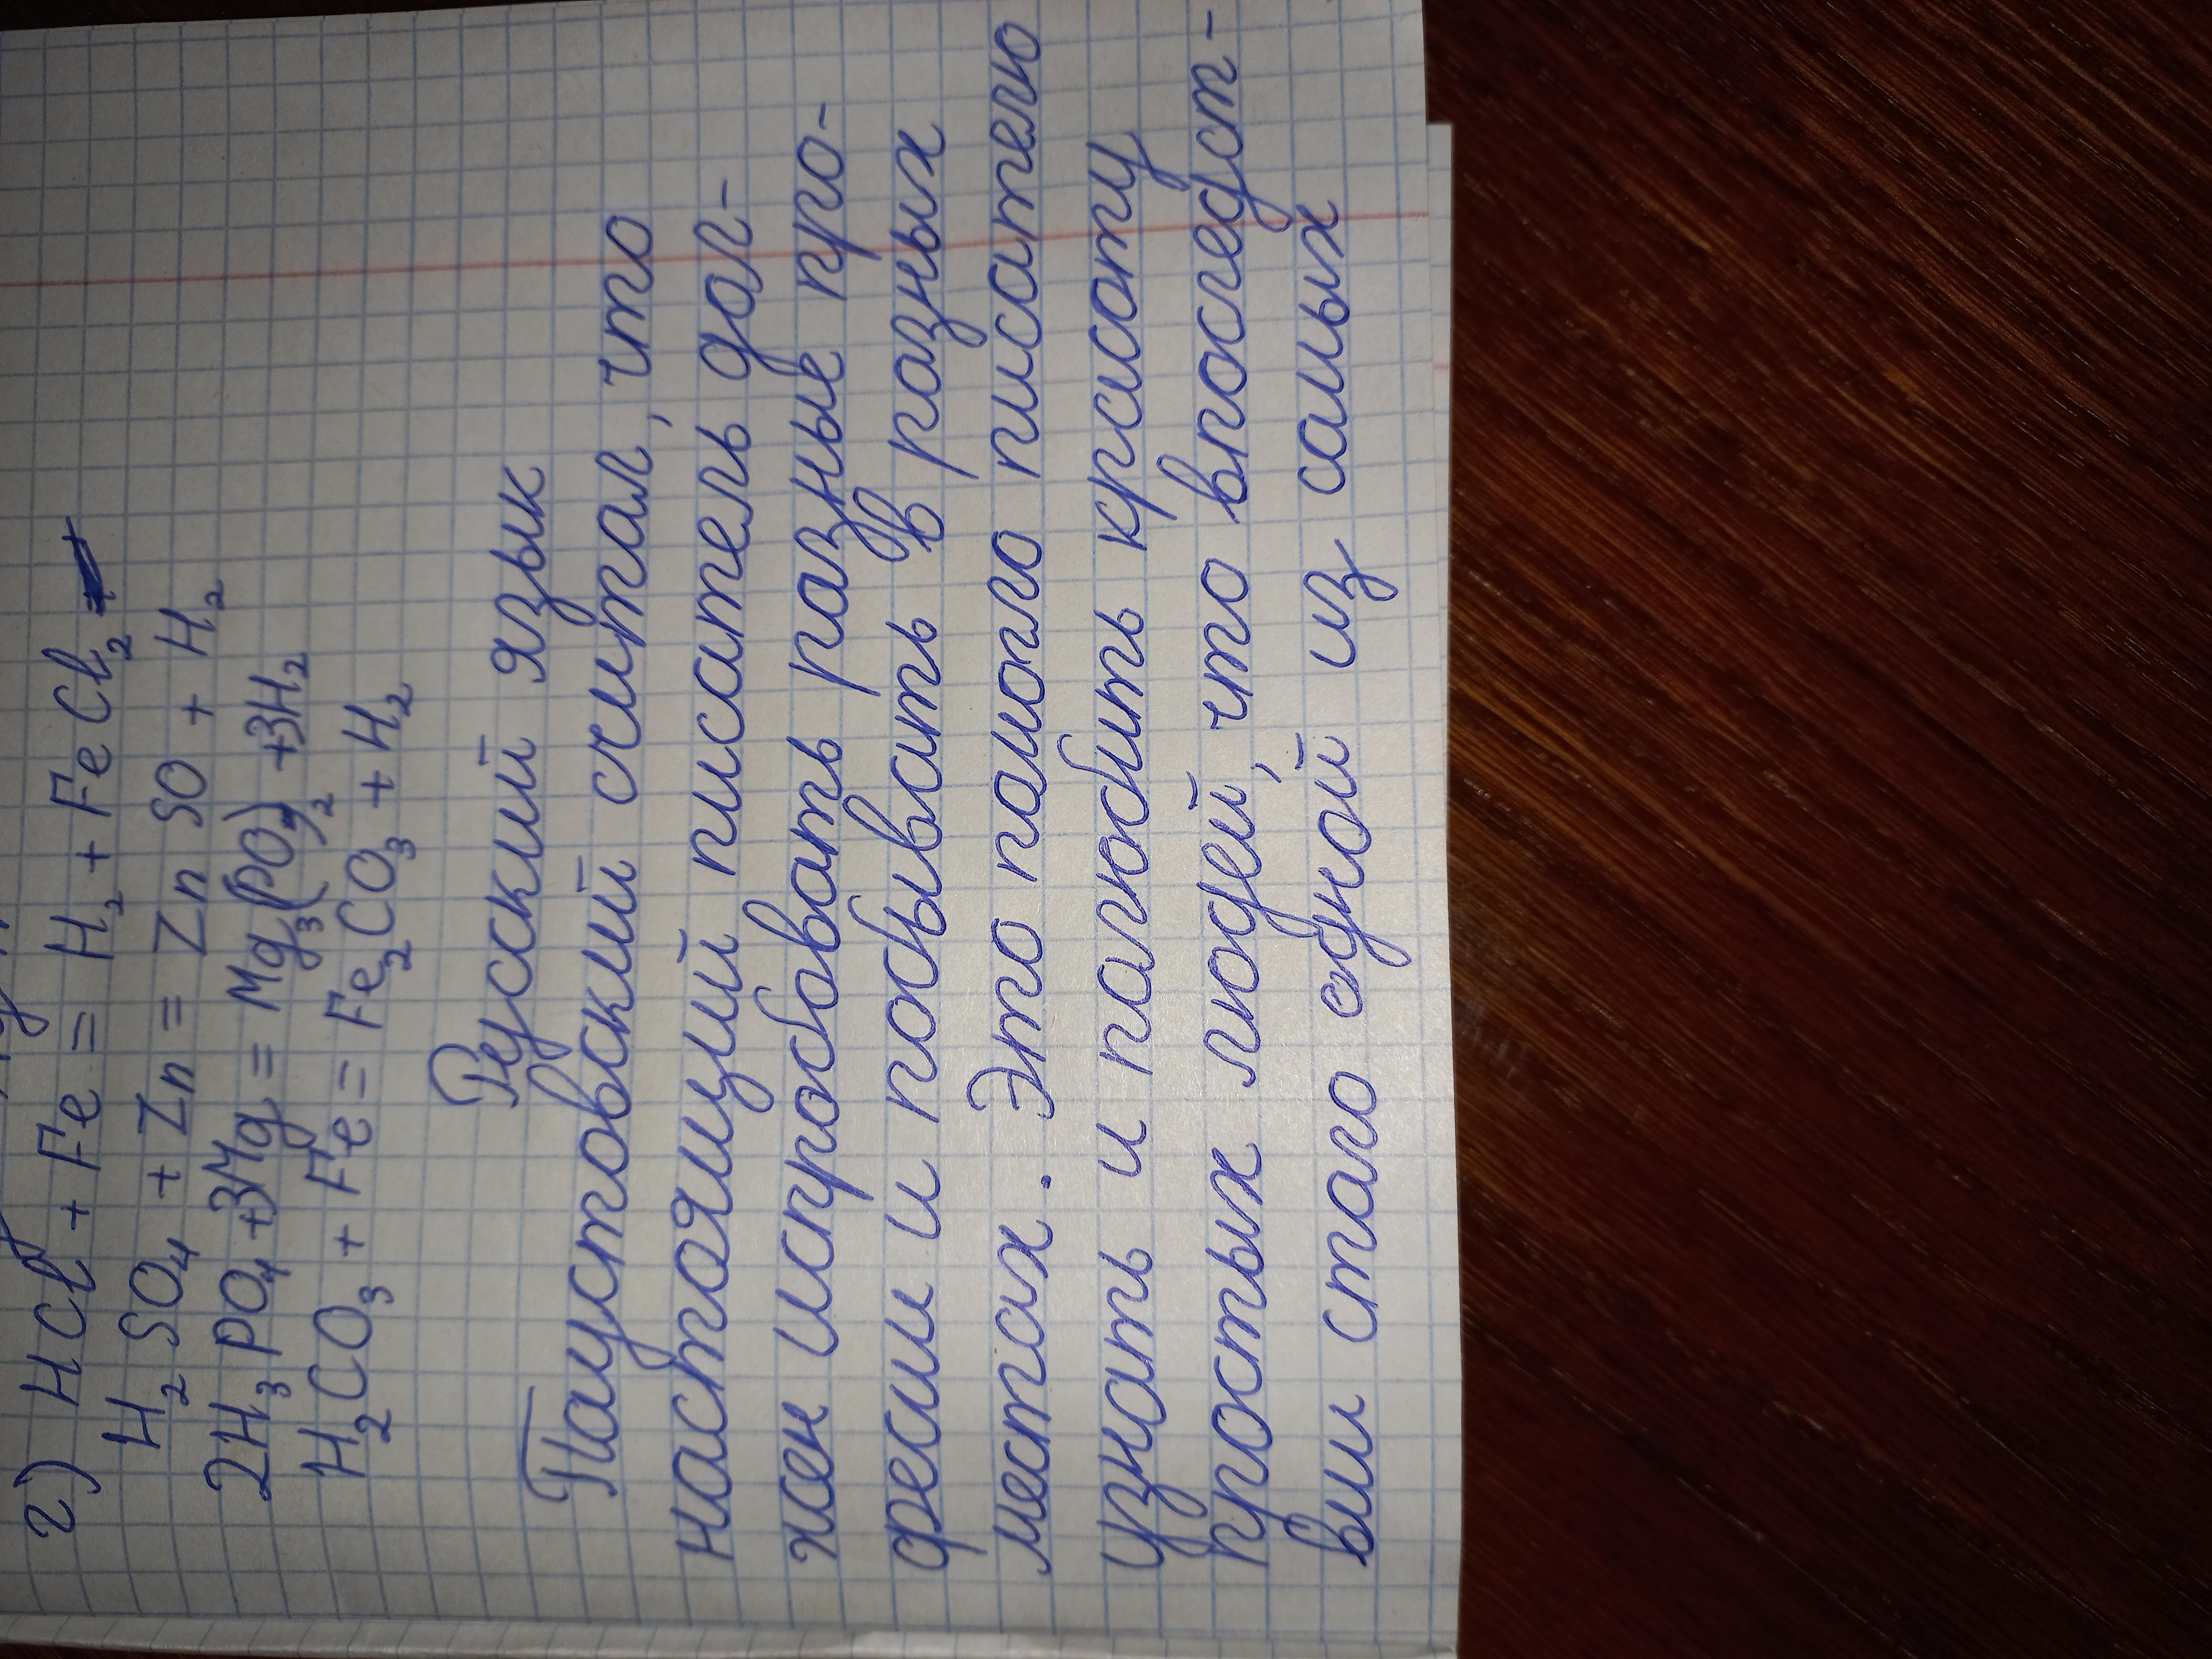 г) HCl + Fe = H₂ + FeCl₂
H₂SO₄ + Zn = ZnSO + H₂
2H₃PO₄ + 3Mg = Mg₃(PO₄)₂ + 3H₂
H₂CO₃ + Fe = Fe₂CO₃ + H₂
Русский язык
Паустовский считал, что
настоящий писатель дол-
жен испробовать разные про-
фесии и побывать в разных
местах. Это помогло писателю
узнать и полюбить красоту
простых людей, что впоследст-
вии стало одной из самых